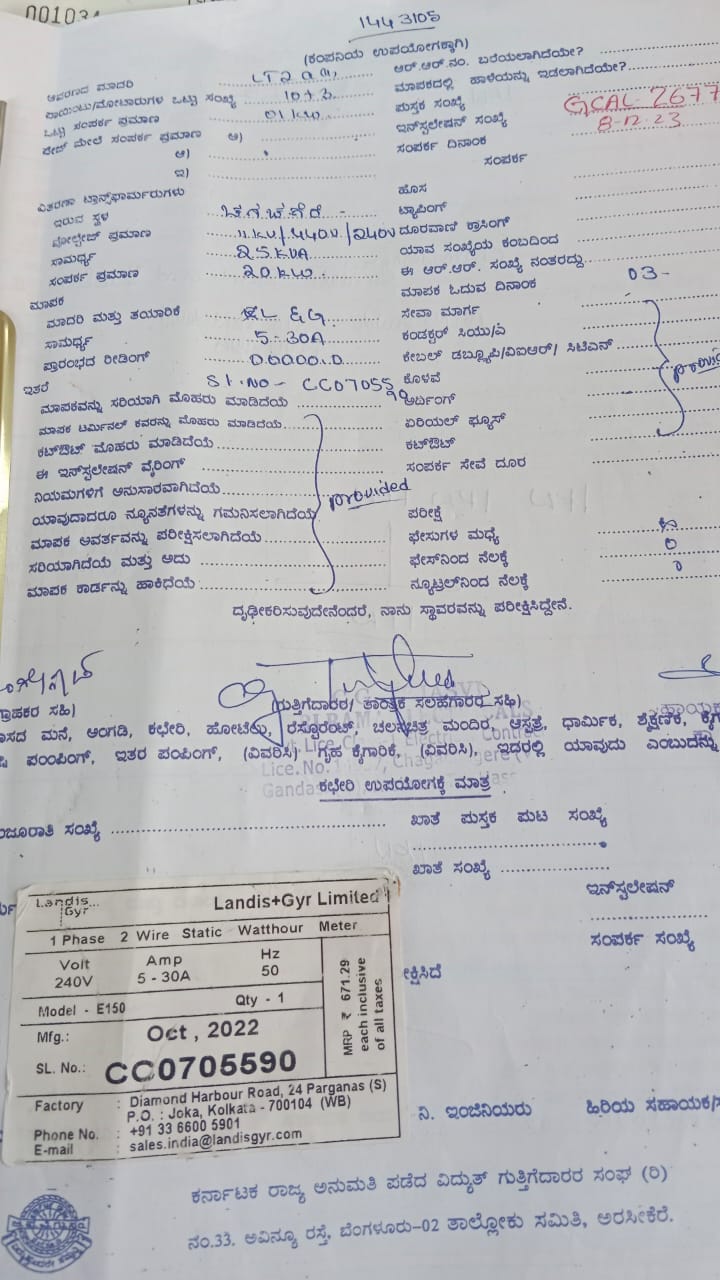 00103
1443105
(ಕಂಪನಿಯ ಉಪಯೋಗಕ್ಕಾಗಿ)
ಆವರಣದ ಮಾದರಿ LT2 a(ii)
ಪಾಯಿಂಟು/ಮೋಟಾರುಗಳ ಒಟ್ಟು ಸಂಖ್ಯೆ 10+3
ಒಟ್ಟು ಸಂಪರ್ಕ ಪ್ರಮಾಣ 01 kw
ಫೇಜ್ ಮೇಲೆ ಸಂಪರ್ಕ ಪ್ರಮಾಣ ಅ)
ಆ)
ಇ)
ವಿತರಣಾ ಟ್ರಾನ್ಸ್‌ಫಾರ್ಮರುಗಳು
ಇರುವ ಸ್ಥಳ
ವೋಲ್ಟೇಜ್ ಪ್ರಮಾಣ 11 KV/440V/240V
ಸಾಮರ್ಥ್ಯ 25 KVA
ಸಂಪರ್ಕ ಪ್ರಮಾಣ 20 kw
ಮಾಪಕ
ಮಾದರಿ ಮತ್ತು ತಯಾರಿಕೆ L & G
ಸಾಮರ್ಥ್ಯ 5-30A
ಪ್ರಾರಂಭದ ರೀಡಿಂಗ್ 00000.0
ಇತರೆ Sl.NO - CC0705590
ಮಾಪಕವನ್ನು ಸರಿಯಾಗಿ ಮೊಹರು ಮಾಡಿದೆಯೆ
ಮಾಪಕ ಟರ್ಮಿನಲ್ ಕವರನ್ನು ಮೊಹರು ಮಾಡಿದೆಯೆ
ಕಟ್‌ಔಟ್ ಮೊಹರು ಮಾಡಿದೆಯೆ
ಈ ಇನ್‌ಸ್ಟಲೇಷನ್ ವೈರಿಂಗ್
ನಿಯಮಗಳಿಗೆ ಅನುಸಾರವಾಗಿದೆಯೆ
provided
ಯಾವುದಾದರೂ ನ್ಯೂನತೆಗಳನ್ನು ಗಮನಿಸಲಾಗಿದೆಯೆ
ಮಾಪಕ ಆವರ್ತವನ್ನು ಪರೀಕ್ಷಿಸಲಾಗಿದೆಯೆ
ಸರಿಯಾಗಿದೆಯೆ ಮತ್ತು ಅದು
ಮಾಪಕ ಕಾರ್ಡನ್ನು ಹಾಕಿದೆಯೆ
ಆರ್.ಆರ್.ನಂ. ಬರೆಯಲಾಗಿದೆಯೇ?
ಮಾಪಕದಲ್ಲಿ ಹಾಳೆಯನ್ನು ಇಡಲಾಗಿದೆಯೇ?
ಪುಸ್ತಕ ಸಂಖ್ಯೆ
ಇನ್‌ಸ್ಟಲೇಷನ್ ಸಂಖ್ಯೆ GCAL 2677
ಸಂಪರ್ಕ ದಿನಾಂಕ 8-12-23
ಸಂಪರ್ಕ
ಹೊಸ
ಟ್ಯಾಪಿಂಗ್
ದೂರವಾಣಿ ಕ್ರಾಸಿಂಗ್
ಯಾವ ಸಂಖ್ಯೆಯ ಕಂಬದಿಂದ
ಈ ಆರ್.ಆರ್. ಸಂಖ್ಯೆ ನಂತರದ್ದು
ಮಾಪಕ ಓದುವ ದಿನಾಂಕ 03-
ಸೇವಾ ಮಾರ್ಗ
ಕಂಡಕ್ಟರ್ ಸಿಯು/ಎ
ಕೇಬಲ್ ಡಬ್ಲ್ಯೂಪಿ/ವಿಐಆರ್/ ಸಿಟಿಎಸ್
ಕೊಳವೆ
ಅರ್ಥಿಂಗ್
ಏರಿಯಲ್ ಫ್ಯೂಸ್
ಕಟ್‌ಔಟ್
ಸಂಪರ್ಕ ಸೇವೆ ದೂರ
ಪರೀಕ್ಷೆ
ಫೇಸುಗಳ ಮಧ್ಯೆ
ಫೇಸ್‌ನಿಂದ ನೆಲಕ್ಕೆ
ನ್ಯೂಟ್ರಲ್‌ನಿಂದ ನೆಲಕ್ಕೆ
ದೃಢೀಕರಿಸುವುದೇನೆಂದರೆ, ನಾನು ಸ್ಥಾವರವನ್ನು ಪರೀಕ್ಷಿಸಿದ್ದೇನೆ.
ಗ್ರಾಹಕರ ಸಹಿ)
(ಗುತ್ತಿಗೆದಾರರ/ ತಾಂತ್ರಿಕ ಸಲಹೆಗಾರರ ಸಹಿ)
ಮನೆ, ಅಂಗಡಿ, ಕಛೇರಿ, ಹೋಟೆಲು, ರೆಸ್ಟೊರೆಂಟ್ ಚಲನಚಿತ್ರ ಮಂದಿರ, ಆಸ್ಪತ್ರೆ, ಧಾರ್ಮಿಕ, ಶೈಕ್ಷಣಿಕ,
ಪಂಪಿಂಗ್, ಇತರ ಪಂಪಿಂಗ್, (ವಿವರಿಸಿ) ಗೃಹ ಕೈಗಾರಿಕೆ, (ವಿವರಿಸಿ), ಇದರಲ್ಲಿ ಯಾವುದು ಎಂಬುದನ್ನು
ಕಛೇರಿ ಉಪಯೋಗಕ್ಕೆ ಮಾತ್ರ
ಸಂಖ್ಯೆ
ಖಾತೆ ಪುಸ್ತಕ ಪುಟ ಸಂಖ್ಯೆ
ಖಾತೆ ಸಂಖ್ಯೆ
ಇನ್‌ಸ್ಟಲೇಷನ್
ಸಂಪರ್ಕ ಸಂಖ್ಯೆ
Landis Gyr
Landis+Gyr Limited
1 Phase 2 Wire Static Watthour Meter
Volt Amp Hz
240V 5 - 30A 50
Model - E150 Qty - 1
MRP ₹ 671.29 each inclusive of all taxes
Mfg.: Oct, 2022
SL. No.: CC0705590
Factory : Diamond Harbour Road, 24 Parganas (S)
P.O. : Joka, Kolkata - 700104 (WB)
Phone No. : +91 33 6600 5901
E-mail : sales.india@landisgyr.com
ನಿ. ಇಂಜಿನಿಯರು
ಹಿರಿಯ ಸಹಾಯಕ/
ಕರ್ನಾಟಕ ರಾಜ್ಯ ಅನುಮತಿ ಪಡೆದ ವಿದ್ಯುತ್ ಗುತ್ತಿಗೆದಾರರ ಸಂಘ (ರಿ)
ನಂ.33. ಅವಿನ್ಯೂ ರಸ್ತೆ, ಬೆಂಗಳೂರು-02 ತಾಲ್ಲೋಕು ಸಮಿತಿ, ಅರಸೀಕೆರೆ.